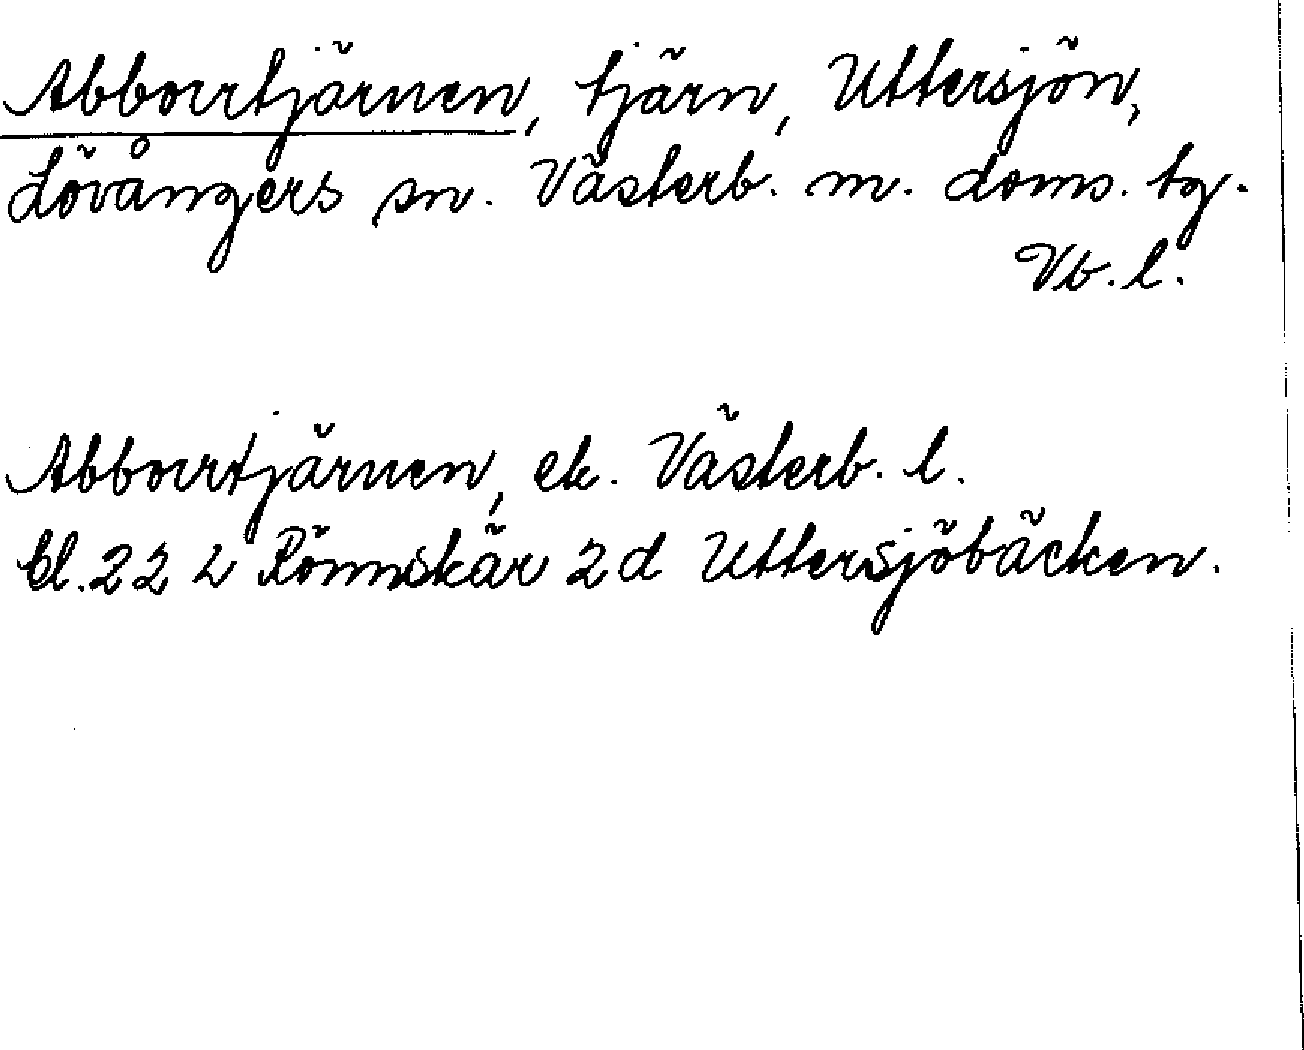 Abborrtjärnen, tjärn, Uttersjön,
Lövångers sn. Västerb. m. doms. tg.
Vb. l.
Abborrtjärnen, ek. Västerb. l.
bl. 22 L Rönnskär 2d Uttersjöbäcken.